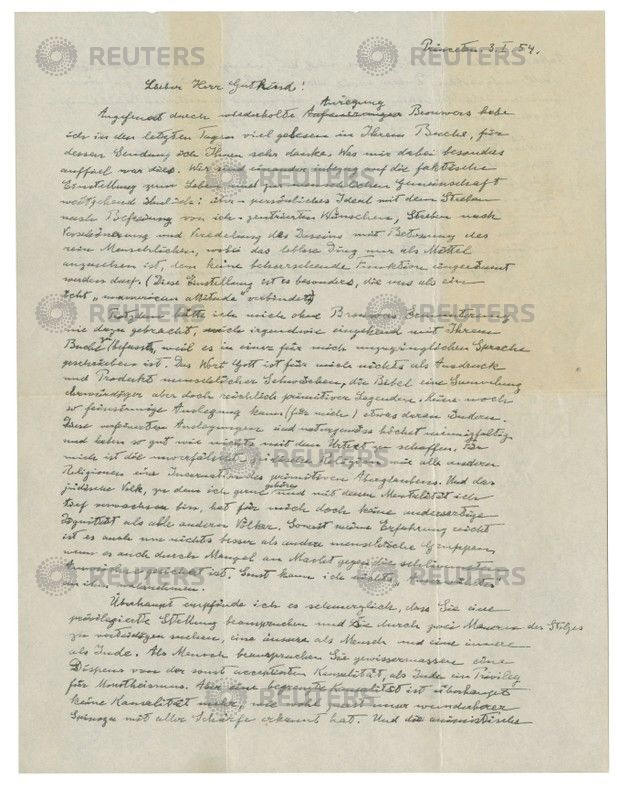 Princeton. 3. I. 54.
Lieber Herr Gutkind!
Angefeuert durch wiederholte Anregung Brouwers habe
ich in den letzten Tagen viel gelesen in Ihrem Buche, für
dessen Sendung ich Ihnen sehr danke. Was mir dabei besonders
auffiel war dies. Wir sind einander inbezug auf die faktische
Einstellung zum Leben und zur menschlichen Gemeinschaft
weitgehend ähnlich: über-persönliches Ideal mit dem Streben
nach Befreiung von ich-zentrierten Wünschen, Streben nach
Verschönerung und Veredelung des Daseins mit Betonung des
rein Menschlichen, wobei das leblose Ding nur als Mittel
anzusehen ist, dem keine beherrschende Funktion eingeräumt
werden darf. (Diese Einstellung ist es besonders, die uns als ein
echt "unamerican attitude" verbindet)
Trotzdem hätte ich mich ohne Brouwers Ermunterung
nie dazu gebracht, mich irgendwie eingehend mit Ihrem
Buche zu befassen, weil es in einer für mich unzugänglichen Sprache
geschrieben ist. Das Wort Gott ist für mich nichts als Ausdruck
und Produkt menschlicher Schwächen, die Bibel eine Sammlung
ehrwürdiger aber doch reichlich primitiver Legenden. Keine noch
so feinsinnige Auslegung kann (für mich) etwas daran ändern.
Diese verfeinerten Auslegungen sind naturgemäss höchst mannigfaltig
und haben so gut wie nichts mit dem Urtext zu schaffen. Für
mich ist die unverfälschte jüdische Religion wie alle anderen
Religionen eine Incarnation des primitiven Aberglaubens. Und das
jüdische Volk, zu dem ich gern gehöre und mit dessen Mentalität ich
tief verwachsen bin, hat für mich doch keine andersartige
Dignität als alle anderen Völker. Soweit meine Erfahrung reicht
ist es auch um nichts besser als andere menschliche Gruppen,
wenn es auch durch Mangel an Macht gegen die schlimmsten
Auswüchse gesichert ist. Sonst kann ich nichts "Auserwähltes"
an ihm wahrnehmen.
Überhaupt empfinde ich es schmerzlich, dass Sie eine
privilegierte Stellung beanspruchen und sie durch zwei Mauern des Stolzes
zu verteidigen suchen, eine äussere als Mensch und eine innere
als Jude. Als Mensch beanspruchen Sie gewissermassen einen
Dispens von der sonst acceptierten Kausalität, als Jude ein Privileg
für Monotheismus. Aber eine begrenzte Kausalität ist überhaupt
keine Kausalität mehr, wie wohl zuerst unser wunderbarer
Spinoza mit aller Schärfe erkannt hat. Und die animistische
REUTERS
REUTERS
REUTERS
REUTERS
REUTERS
REUTERS
REUTERS
REUTERS
REUTERS